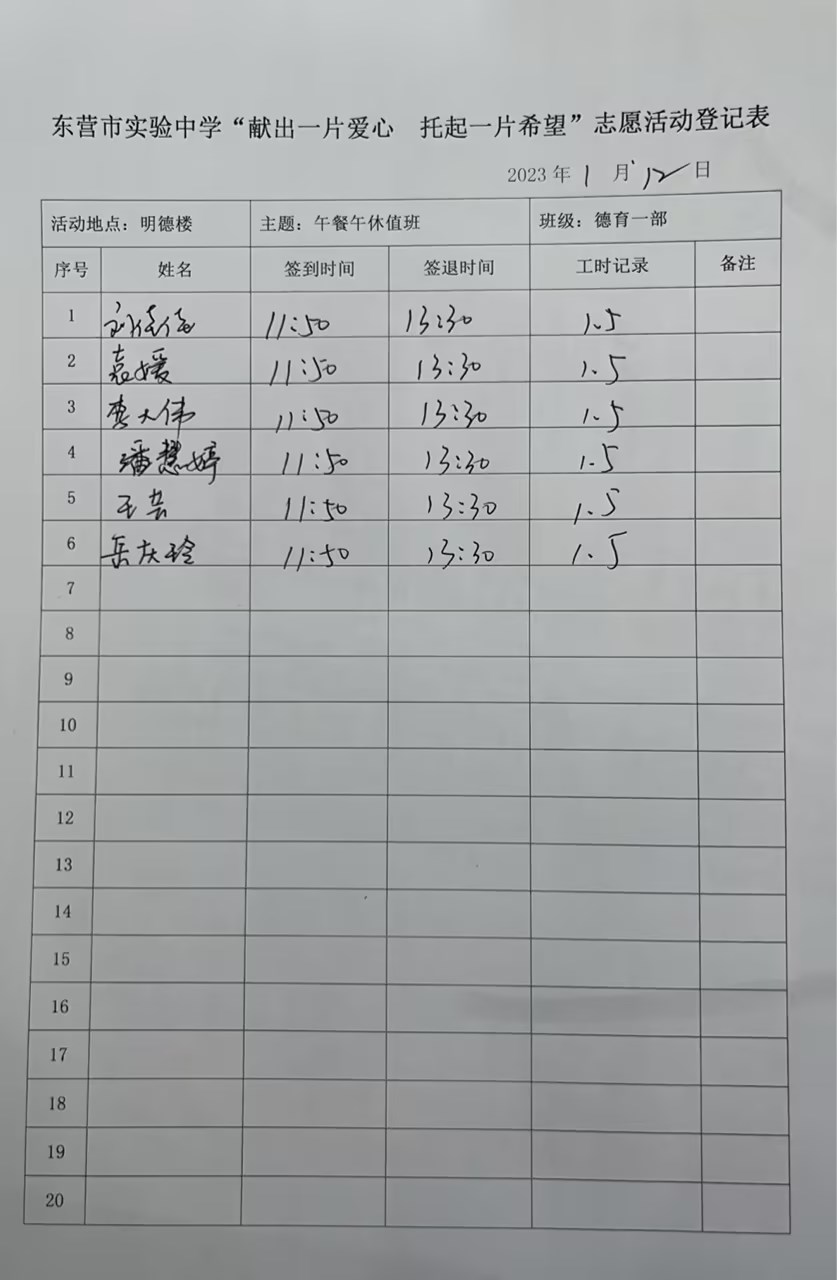 东营市实验中学“献出一片爱心 托起一片希望”志愿活动登记表
2023 年 1 月 12 日
活动地点：明德楼 主题：午餐午休值班 班级：德育一部
序号 姓名 签到时间 签退时间 工时记录 备注
1 刘倩倩 11:50 13:30 1.5
2 袁媛 11:50 13:30 1.5
3 李大伟 11:50 13:30 1.5
4 潘慧婷 11:50 13:30 1.5
5 王芸 11:50 13:30 1.5
6 岳庆玲 11:50 13:30 1.5
7
8
9
10
11
12
13
14
15
16
17
18
19
20